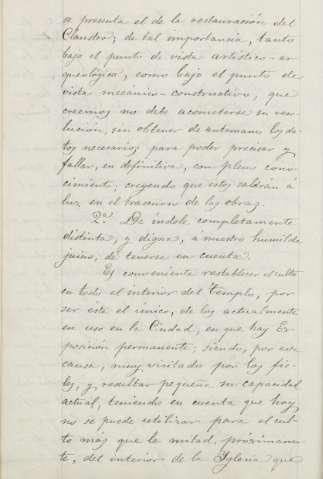 se presenta el de la restauración del
Claustro; de tal importancia, tanto
bajo el punto de vista artístico-ar-
queológico, como bajo el punto de
vista mecánico-constructivo, que
creemos no debe acometerse su reso-
lución, sin obtener de antemano los da-
tos necesarios; para poder precisar y
fallar, en definitiva, con pleno cono-
cimiento; creyendo que estos saldrán á
luz en el trascurso de las obras.
2.ª De índole completamente
distinta, y digna, á nuestro humilde
juicio, de tenerse en cuenta.
Es conveniente restablecer el culto
en todo el interior del Templo, por
ser éste el único, de los actualmente
en uso en la Ciudad, en que hay Ex-
posición permanente; siendo, por esta
causa, muy visitado por los fie-
les, y, resultar pequeña su capacidad
actual, teniendo en cuenta que hoy,
no se puede utilizar para el cul-
to más que la mitad, próximamen-
te, del interior de la Iglesia que